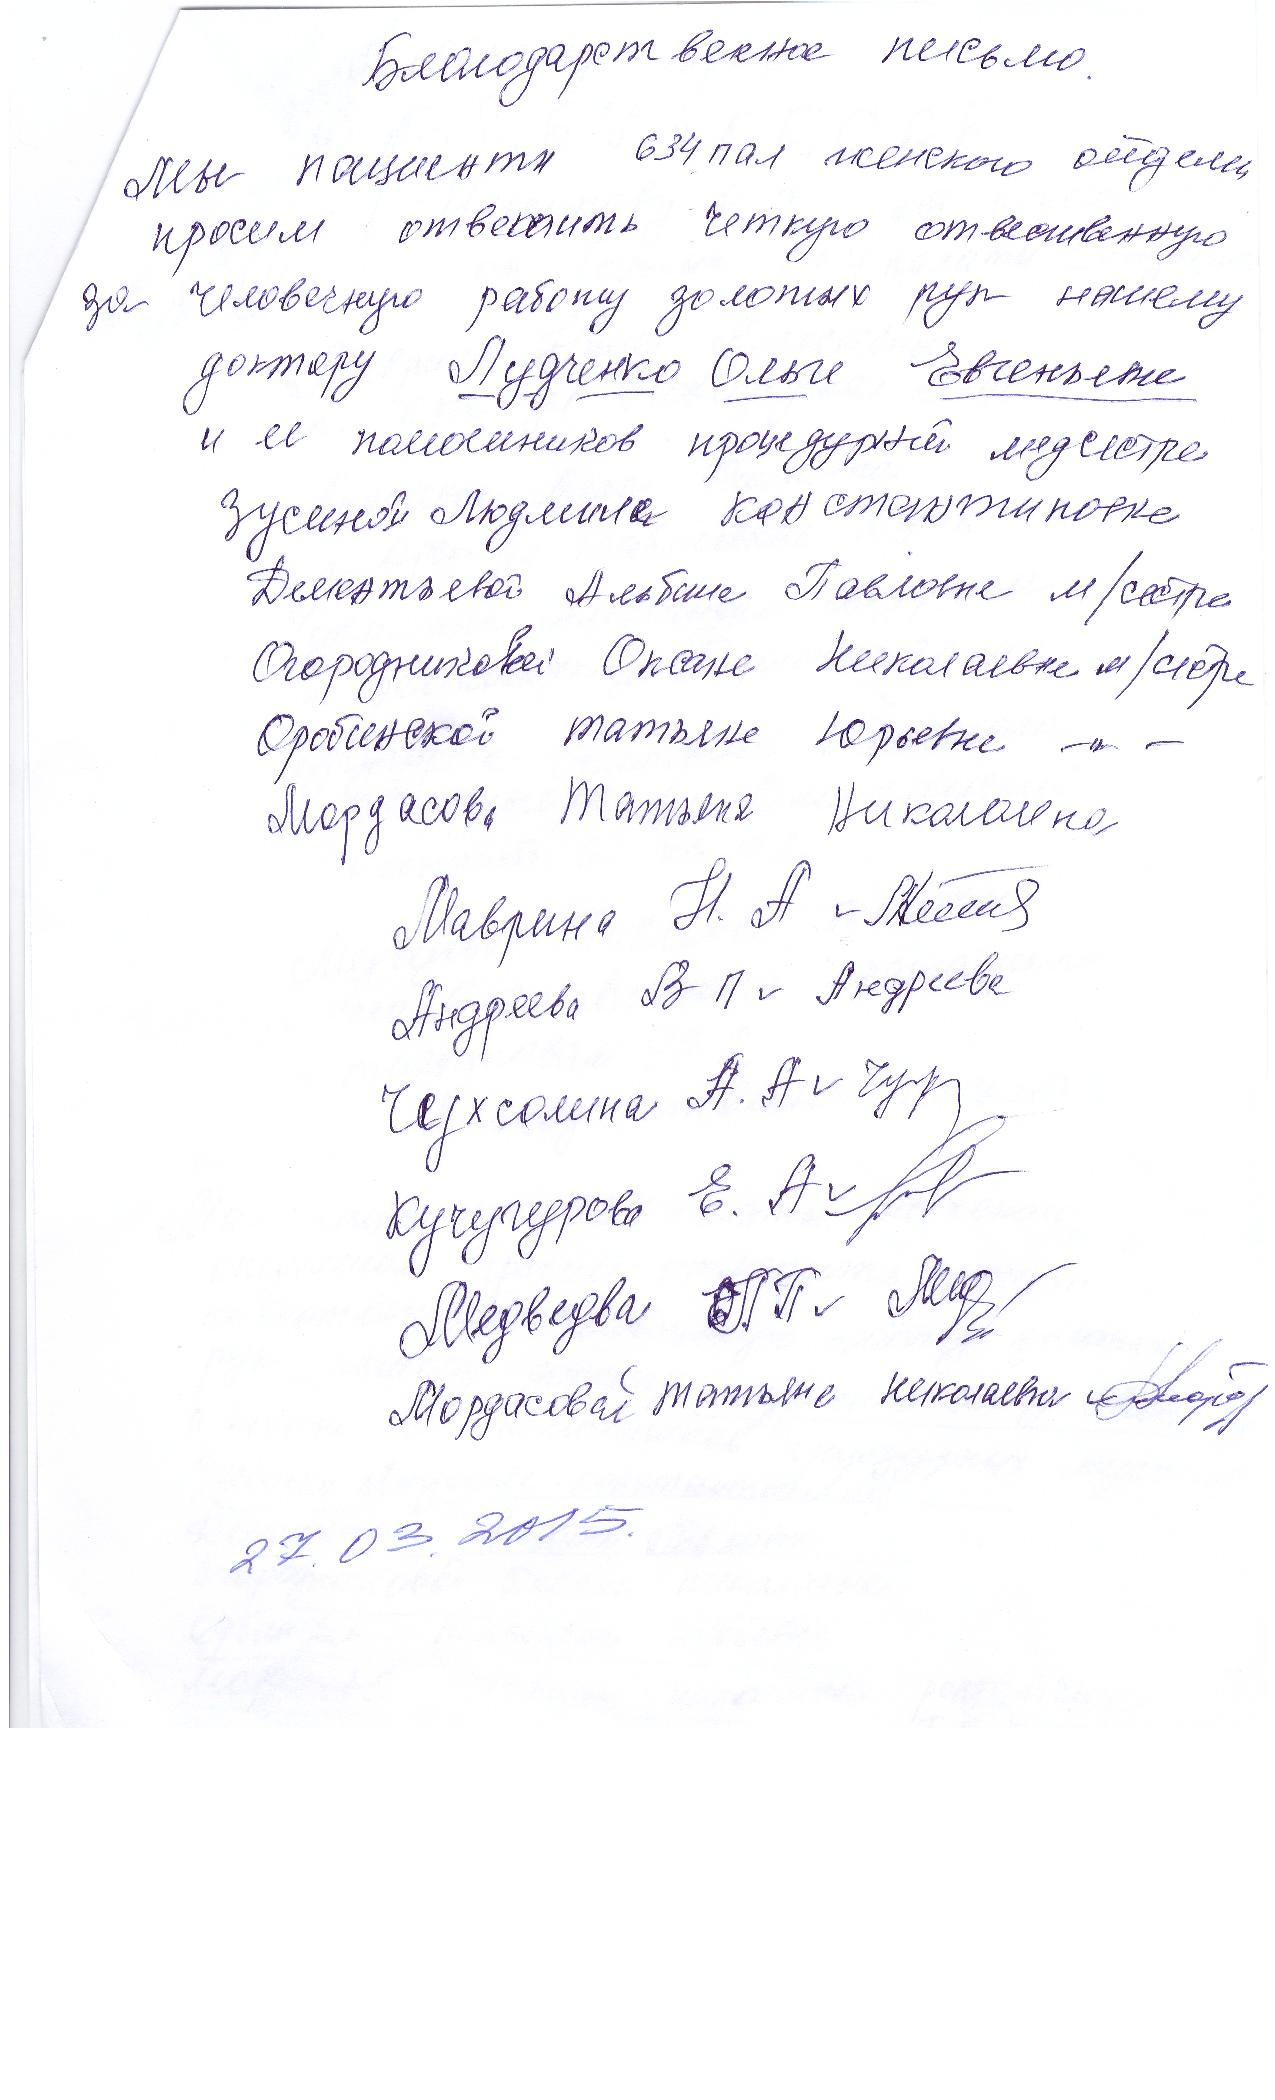 Благодарственное письмо.
Мы пациенты 634 пал женского отделен
просим отметить четкую ответственную
за человечную работу золотых рук нашему
доктору Лудченко Ольге Евгеньевне
и её помошников процедурной медсестре
Зусиной Людмиле Константиновне
Дементьевой Альбине Павловне м/сестре
Огородниковой Оксане Николаевне м/сестре
Оробинской Татьяне Юрьевне — " —
Мордасова Татьяна Николаевна
Маврина Н. А
Андреева В П Андреева
А. А Чур
Кучугурова Е. А
Медведва П П Мед
Мордасовой Татьяне Николаевна
27.03.2015.